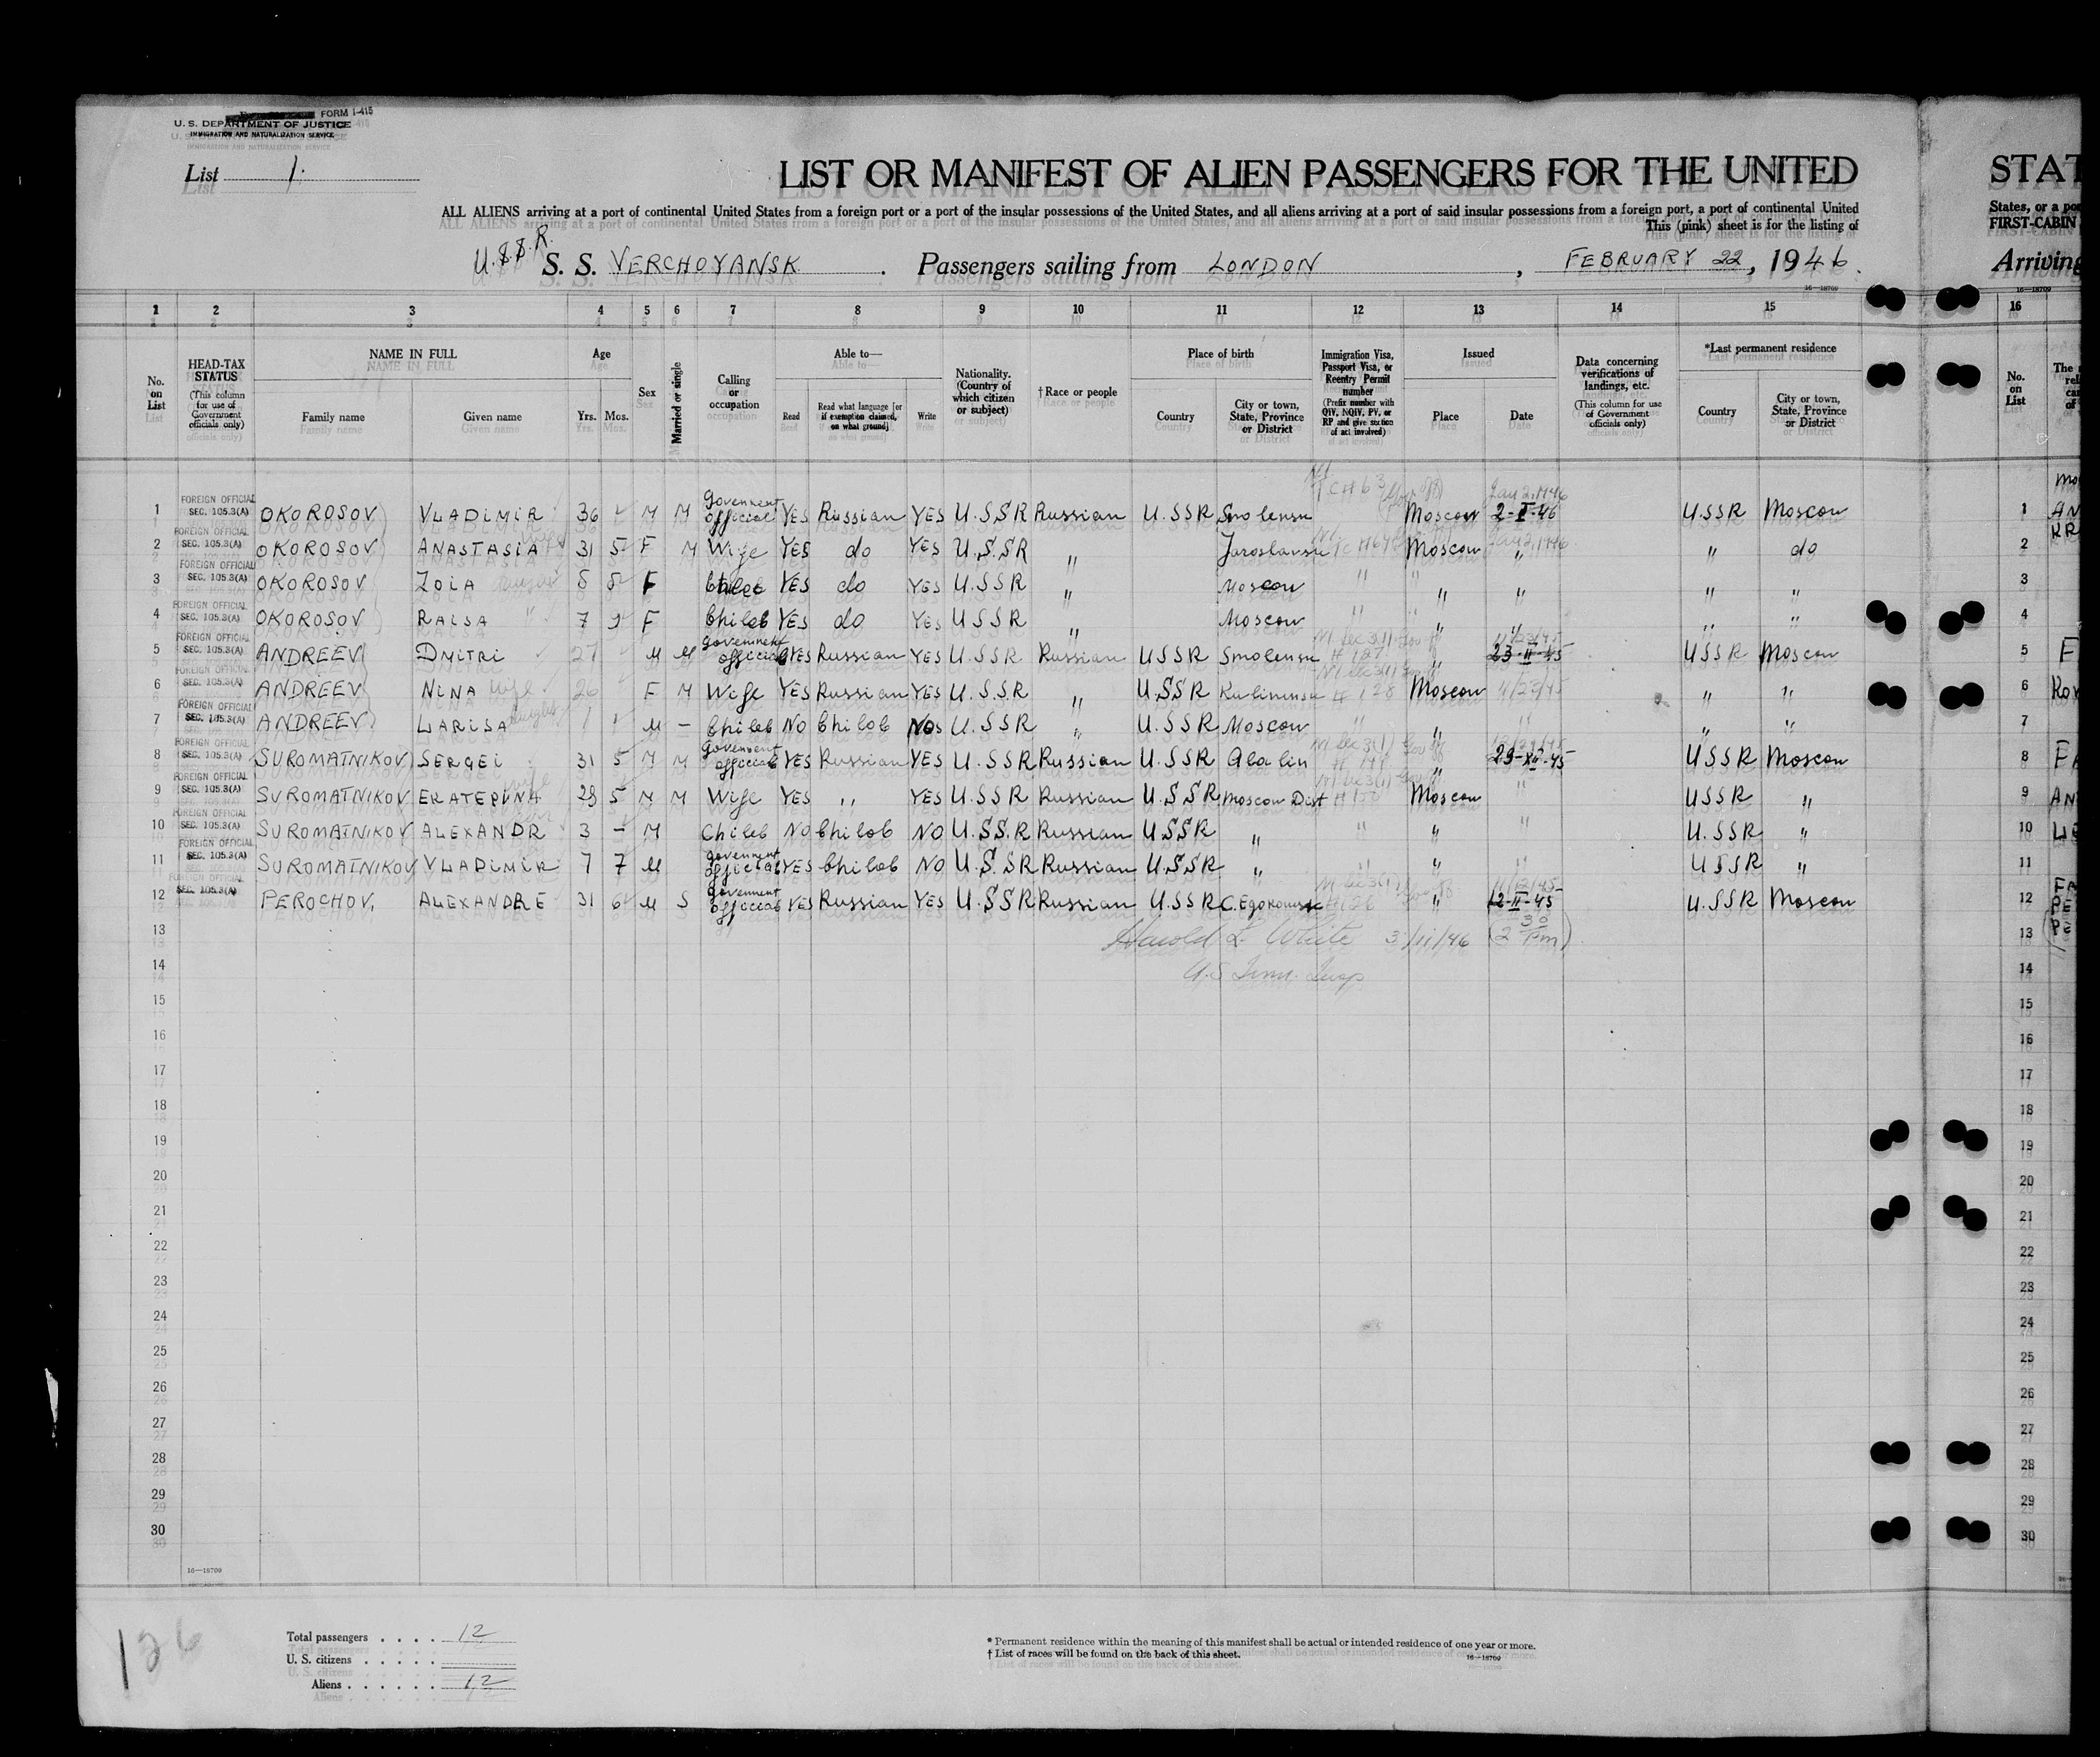 FORM I-415
U. S. DEPARTMENT OF JUSTICE
IMMIGRATION AND NATURALIZATION SERVICE
List 1.
LIST OR MANIFEST OF ALIEN PASSENGERS FOR THE UNITED
STAT
ALL ALIENS arriving at a port of continental United States from a foreign port or a port of the insular possessions of the United States, and all aliens arriving at a port of said insular possessions from a foreign port, a port of continental United
States, or a po
This (pink) sheet is for the listing of
FIRST-CABIN
U.S.S.R. S. S. VERCHOYANSK. Passengers sailing from LONDON, FEBRUARY 22, 1946.
Arriving
16—18709 16—18709
1 2 3 4 5 6 7 8 9 10 11 12 13 14 15 16
No. on List
HEAD-TAX STATUS (This column for use of Government officials only)
NAME IN FULL
Family name Given name
Age
Yrs. Mos.
Sex
Married or single
Calling or occupation
Able to—
Read Read what language [or if exemption claimed, on what ground] Write
Nationality. (Country of which citizen or subject)
†Race or people
Place of birth
Country City or town, State, Province or District
Immigration Visa, Passport Visa, or Reentry Permit number (Prefix number with QIV, NQIV, PV, or RP and give section of act involved)
Issued
Place Date
Data concerning verifications of landings, etc. (This column for use of Government officials only)
*Last permanent residence
Country City or town, State, Province or District
No. on List
The
Jan 2, 1946
1 FOREIGN OFFICIAL SEC. 105.3(A) OKOROSOV VLADIMIR 36 M M Government official YES Russian YES U.SSR Russian U.SSR Smolensk Moscow 2-I-46 USSR Moscow 1
2 FOREIGN OFFICIAL SEC. 105.3(A) OKOROSOV ANASTASIA wife 31 5 F M Wife YES do YES U.S.SR " Jaroslavsk Moscow " " do 2
3 FOREIGN OFFICIAL SEC. 105.3(A) OKOROSOV ZOIA 8 F YES do YES U.SSR " Moscow " " " " " " 3
4 FOREIGN OFFICIAL SEC. 105.3(A) OKOROSOV RAISA " 7 9 F YES do YES USSR " Moscow " " " " " " 4
5 FOREIGN OFFICIAL SEC. 105.3(A) ANDREEV DMITRI 27 M M Government official YES Russian YES U.SSR Russian USSR Smolensk " 23-II-45 USSR Moscow 5
6 FOREIGN OFFICIAL SEC. 105.3(A) ANDREEV NINA wife 26 F M Wife YES Russian YES U.S.SR " U.SSR Moscow " " 6
7 FOREIGN OFFICIAL SEC. 105.3(A) ANDREEV LARISA 1 1 M — NO U.SSR " U.SSR Moscow " " " " " 7
8 FOREIGN OFFICIAL SEC. 105.3(A) SUROMATNIKOV SERGEI 31 5 M M Government official YES Russian YES U.SSR Russian U.SSR " 29-XII-45 USSR Moscow 8
9 FOREIGN OFFICIAL SEC. 105.3(A) SUROMATNIKOV EKATERINA wife 29 5 M M Wife YES " YES U.SSR Russian U.SSR Moscow Dist Moscow " USSR " 9
10 FOREIGN OFFICIAL SEC. 105.3(A) SUROMATNIKOV ALEXANDR 3 - M NO NO U.SS.R Russian USSR " " " " U.SSR " 10
11 FOREIGN OFFICIAL SEC. 105.3(A) SUROMATNIKOV VLADIMIR 7 7 M Government official YES NO U.SSR Russian U.SSR " " " " USSR " 11
12 FOREIGN OFFICIAL SEC. 105.3(A) PEROCHOV. ALEXANDRE 31 6 M S Government official YES Russian YES U.SSR Russian U.SSR " 12-II-45 U.SSR Moscow 12
13 Harold L. White 3/11/46 (2 30 pm) 13
14 U.S Imm. Insp 14
15 15
16 16
17 17
18 18
19 19
20 20
21 21
22 22
23 23
24 24
25 25
26 26
27 27
28 28
29 29
30 30
16—18709
Total passengers .... 12
U. S. citizens .....
Aliens ...... 12
* Permanent residence within the meaning of this manifest shall be actual or intended residence of one year or more.
† List of races will be found on the back of this sheet.
16—18709
126